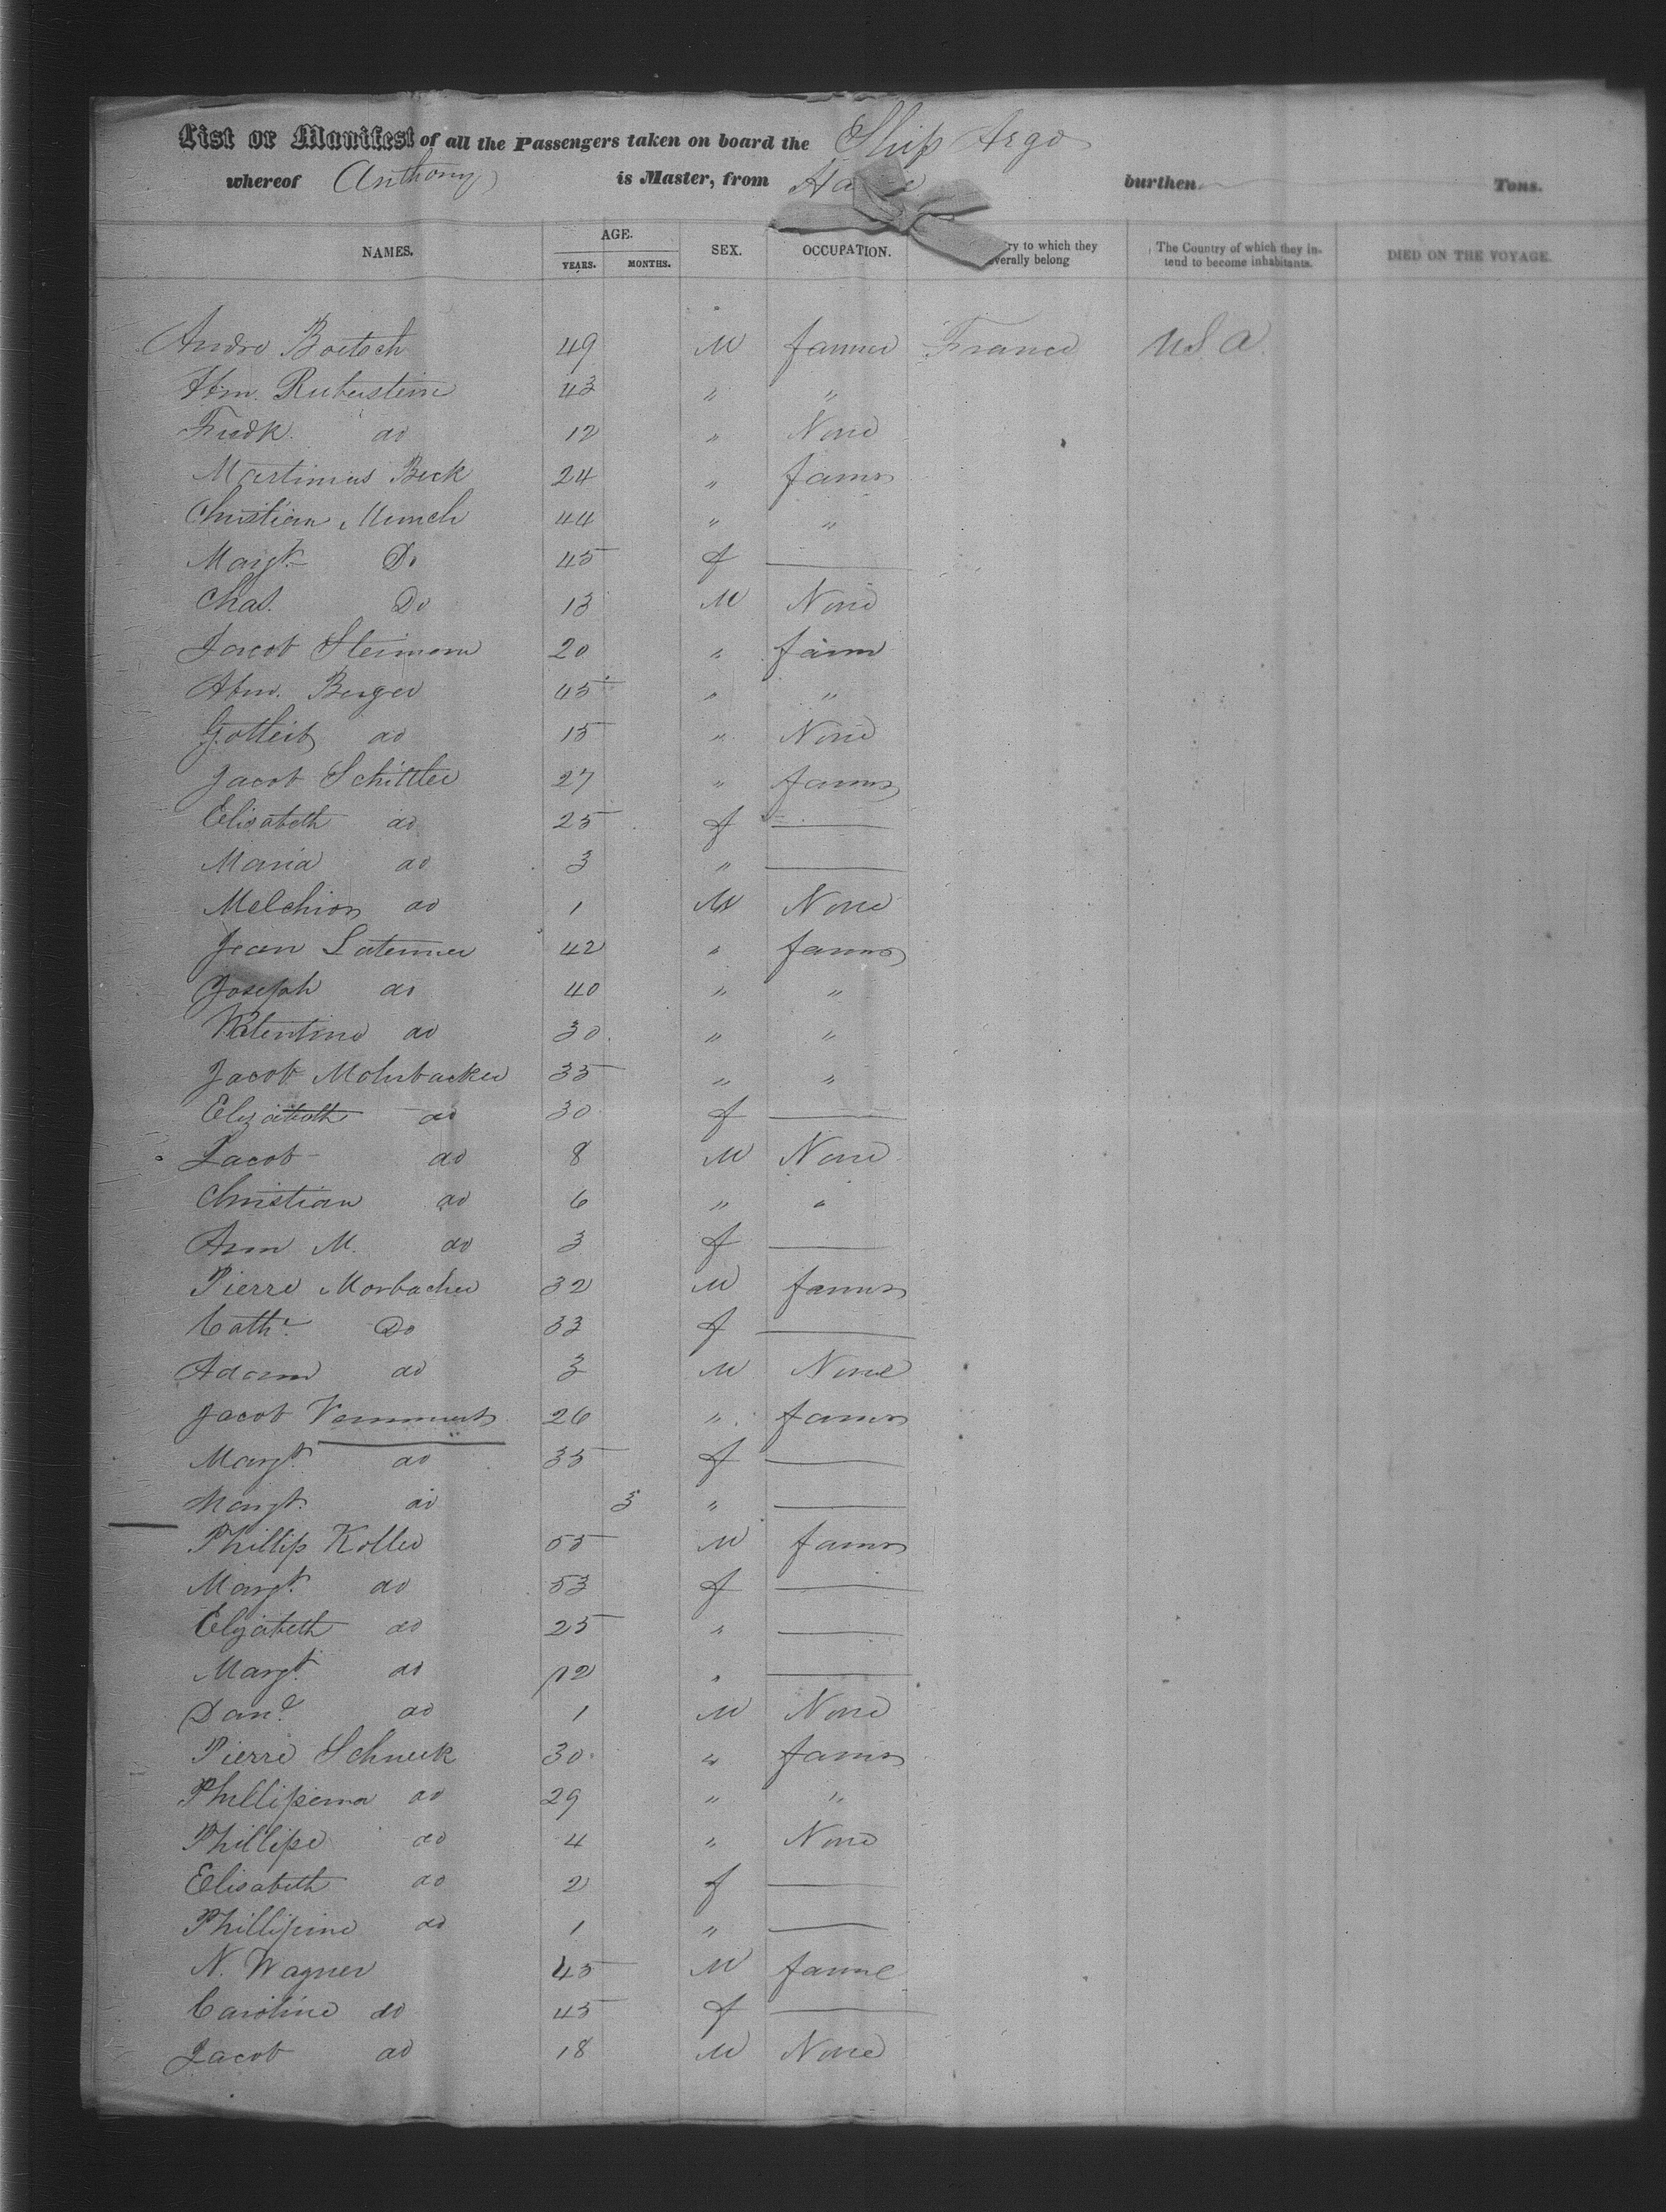 List or Manifest of all the Passengers taken on board the Ship Argo
whereof Anthony is Master, from burthen Tons.
NAMES. AGE. YEARS. MONTHS. SEX. OCCUPATION. to which they severally belong The Country of which they intend to become inhabitants. DIED ON THE VOYAGE.
Andre Boetsch 49 M farmer France U S A
Abm. Rubenstein 43 " "
Fredk. do 12 " None
Martinus Beck 24 " farmr
Christian Munch 44 " "
Margt. Do 45 f
Chas. Do 13 M None
Jacob Steimann 20 " farm
Abm. Berger 45 " "
Gotleib do 15 " None
Jacob Schittler 27 " farmr
Elisabeth do 25 f
Maria do 3 "
Melchior do 1 M None
Jean 42 " farmr
Joseph do 40 " "
Valentine do 30 " "
Jacob Mohrbacker 35 " "
Elizabeth do 30 f
Jacob do 8 M None
Christian do 6 " "
Ann M. do 3 f
Pierre Morbacher 32 M farmr
Cathe. Do 33 f
Adam do 3 M None
Jacob 26 " farmr
Margt. do 35 f
Margt. do 3 "
Phillip Koller 55 M farmr
Margt. do 53 f
Elizabeth do 25 "
Margt. do 12 "
Danl. do 1 M None
Pierre Schneck 30 " farmr
Phillipena do 29 " "
Phillipe do 4 " None
Elisabeth do 2 f
Phillipine do 1 "
N. Wagner 45 M farme
Caroline do 45 f
Jacob do 18 M None